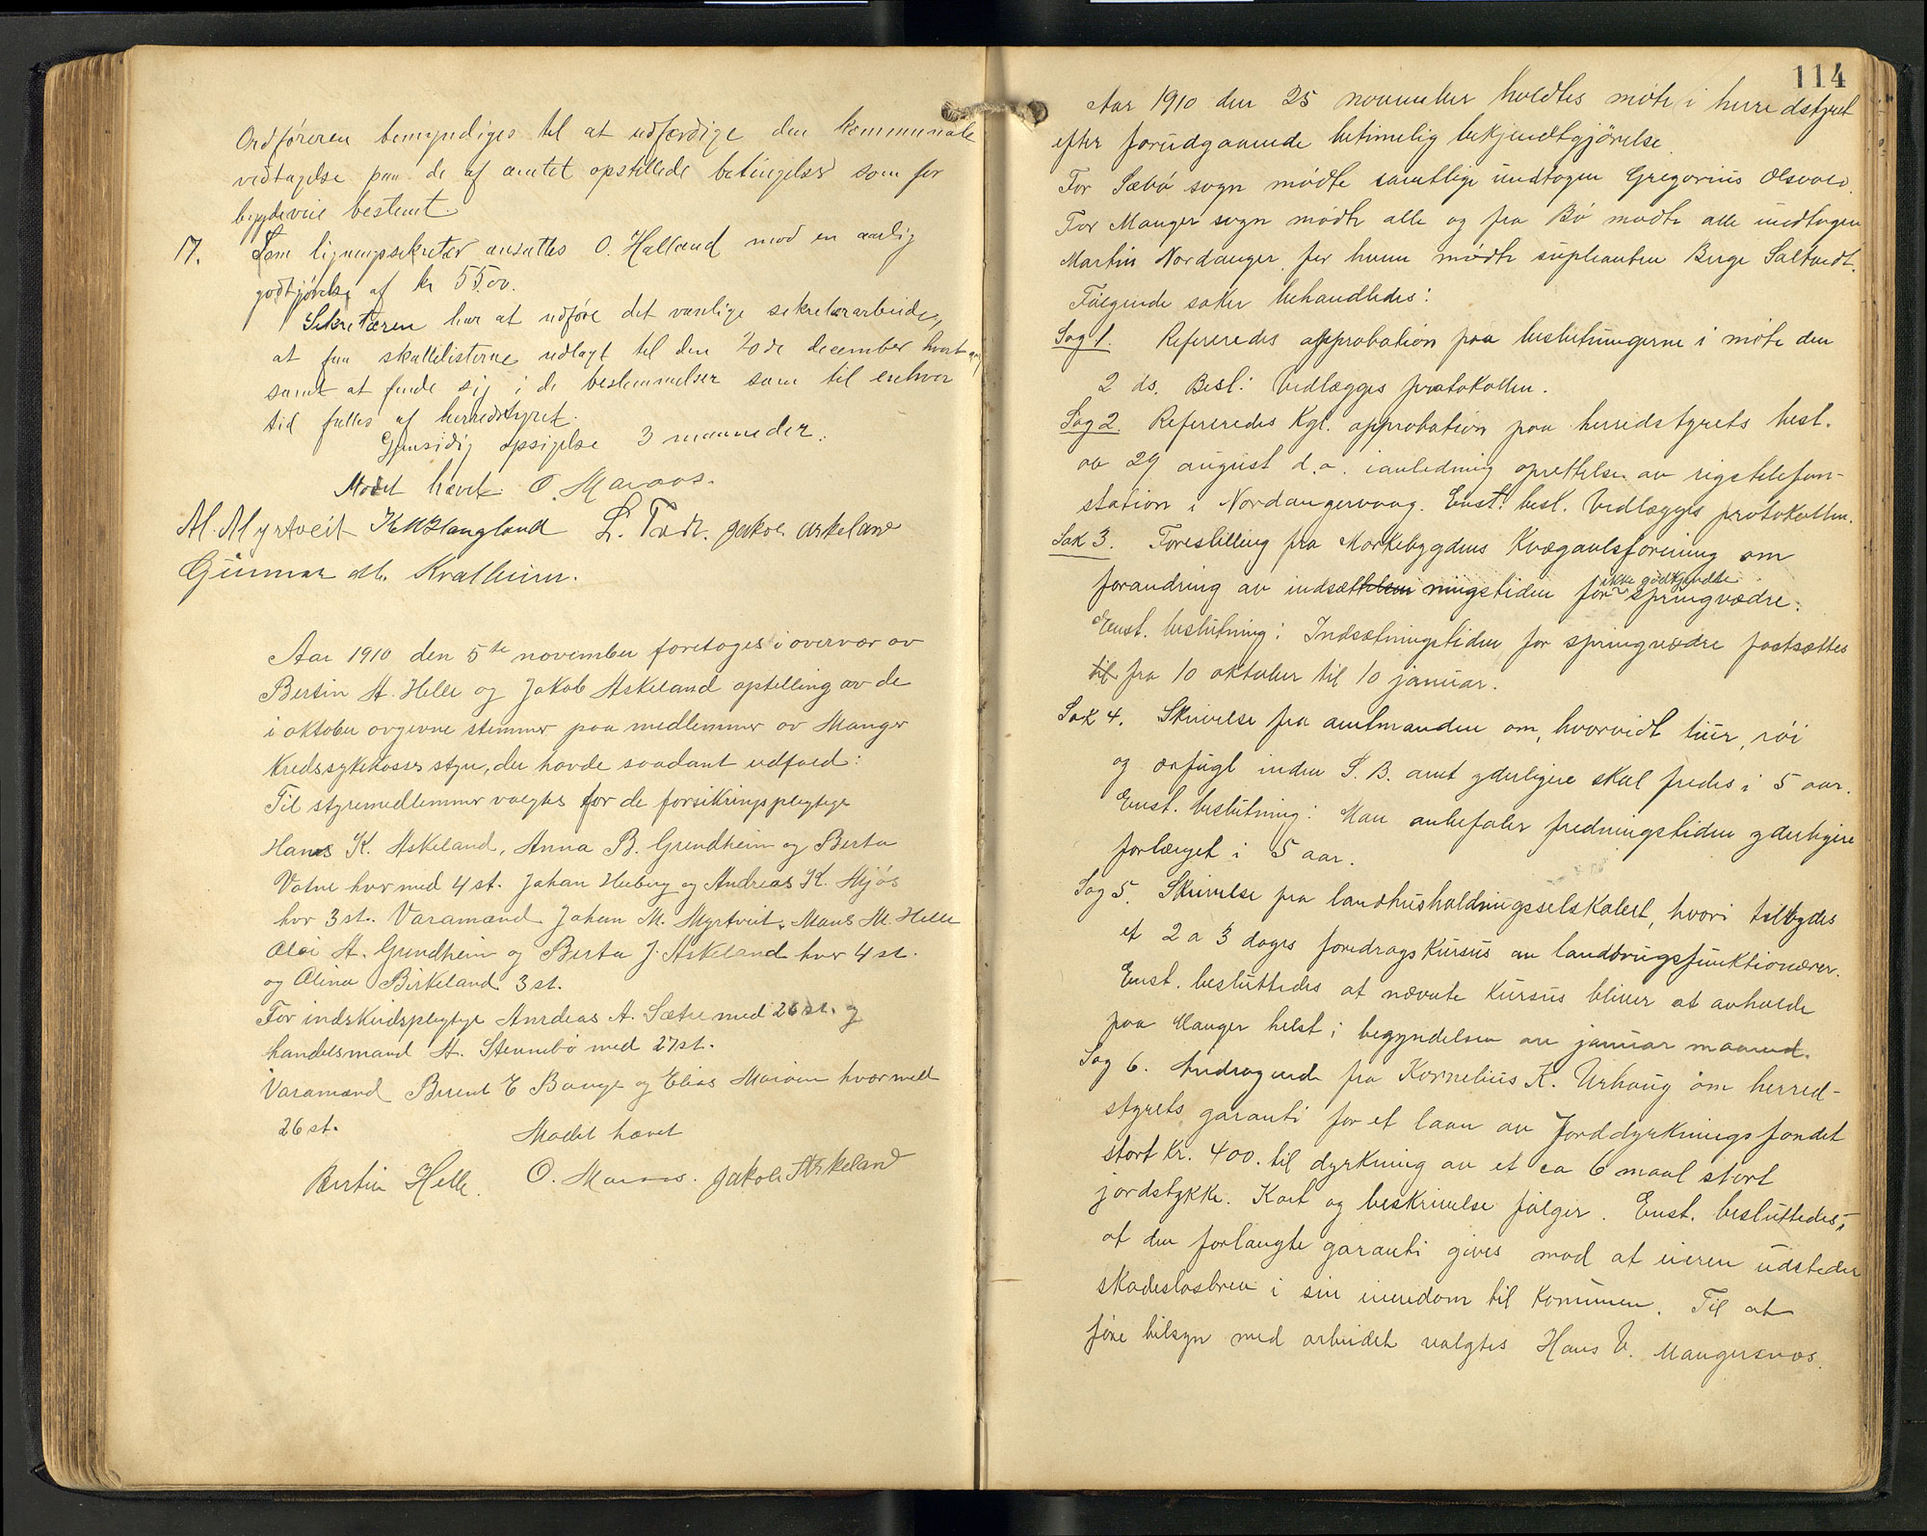 Ordføreren bemyndiges til at udfærdige den kommunale
vedtagelse paa de af amtet opstillede betingelser som for
bygdeveie bestemt.
17. Som ligningssekretær ansattes O. Halland mod en aarlig
godtjørelse af kr 55.00.
Sekretæren har at udføre det vanlige sekretærarbeide,
at faa skattelisterne udlagt til den 20de december hvert aar
samt at finde sig i de bestemmelser som til enhver
tid fattes af herredstyret.
Gjensidig opsigelse 3 maaneder.
Mødet hævet O. Maraas.
M. Myrtveit K M Haugland L. Toft. Jakob Askeland
Gunnar M. Kvalheim.
Aar 1910 den 5te november foretoges i overvær av
Bertin A. Helle og Jakob Askeland optelling av de
i oktober avgivne stemmer paa medlemmer av Manger
Kredssykekasses styre, der havde saadant udfald:
Til styremedlemmer valgtes for de forsikringspligtige
Hans K. Askeland, Anna B. Grundheim og Berta
Vatne hver med 4 st. Johan Heiberg og Andreas K. Mjøs
hver 3 st. Varamænd Johan M. Myrtveit, Mans M. Helle
Oloi A. Grundheim og Berta J. Askeland hver 4 st.
og Olina Birkeland 3 st.
For indskudspligtige Andreas A. Sætre med 26 st. og
handelsmand A. Stenebø med 27 st.
Varamænd Berent E Bauge og Elias Maraas hver med
26 st.
Mødet hævet
Bertin Helle. O. Maraas. Jakob Askeland
114
Aar 1910 den 25 november holdtes møte i herredstyret
efter forudgaaende betimelig bekjendtgjørelse.
For Sæbø sogn mødte samtlige undtagen Gregorius Olsvold.
For Manger sogn mødte alle og fra Bø mødte alle undtagen
Martin Nordanger, for hvem mødte supleanten Berge Saltvedt.
Følgende saker behandledes:
Sag 1. Refereredes approbation paa beslutningerne i møte den
2 ds. Besl: Vedlægges protokollen.
Sag 2. Refereredes Kgl. approbation paa herredstyrets besl.
av 29 august d.a. i anledning oprettelse av rigstelefon-
station i Nordangervaag. Enst. besl. Vedlægges protokollen.
Sak 3. Forestilling fra Morkebygdens Kvægavlsforening om
forandring av indsætningstiden for ikke godkjendte springvædre.
Enst. beslutning: Indsætningstiden for springvædre fastsættes
til fra 10 oktober til 10 januar.
Sak 4. Skrivelse fra amtmanden om, hvorvidt tiur, røi
og orfugl inden S. B. amt yderligere skal fredes i 5 aar.
Enst. beslutning: Man anbefaler fredningstiden yderligere
forlænget i 5 aar.
Sag 5. Skrivelse fra landhusholdningsselskabet, hvori tilbydes
et 2 a 3 dages foredragskursus av landbrugsfunktionærer.
Enst. besluttedes at nævnte kursus bliver at avholde
paa Manger helst i begyndelsen av januar maaned.
Sag 6. Andragende fra Kornelius K. Urhaug om herred-
styrets garanti for et laan av Jorddyrkningsfondet
stort Kr. 400. til dyrkning av et ca 6 maal stort
jordstykke. Kart og beskrivelse følger. Enst. besluttedes:
at den forlangte garanti gives mod at eieren udsteder
skadesløsbrev i sin eiendom til kommunen. Til at
føre tilsyn med arbeidet valgtes Hans V. Mangersnes.